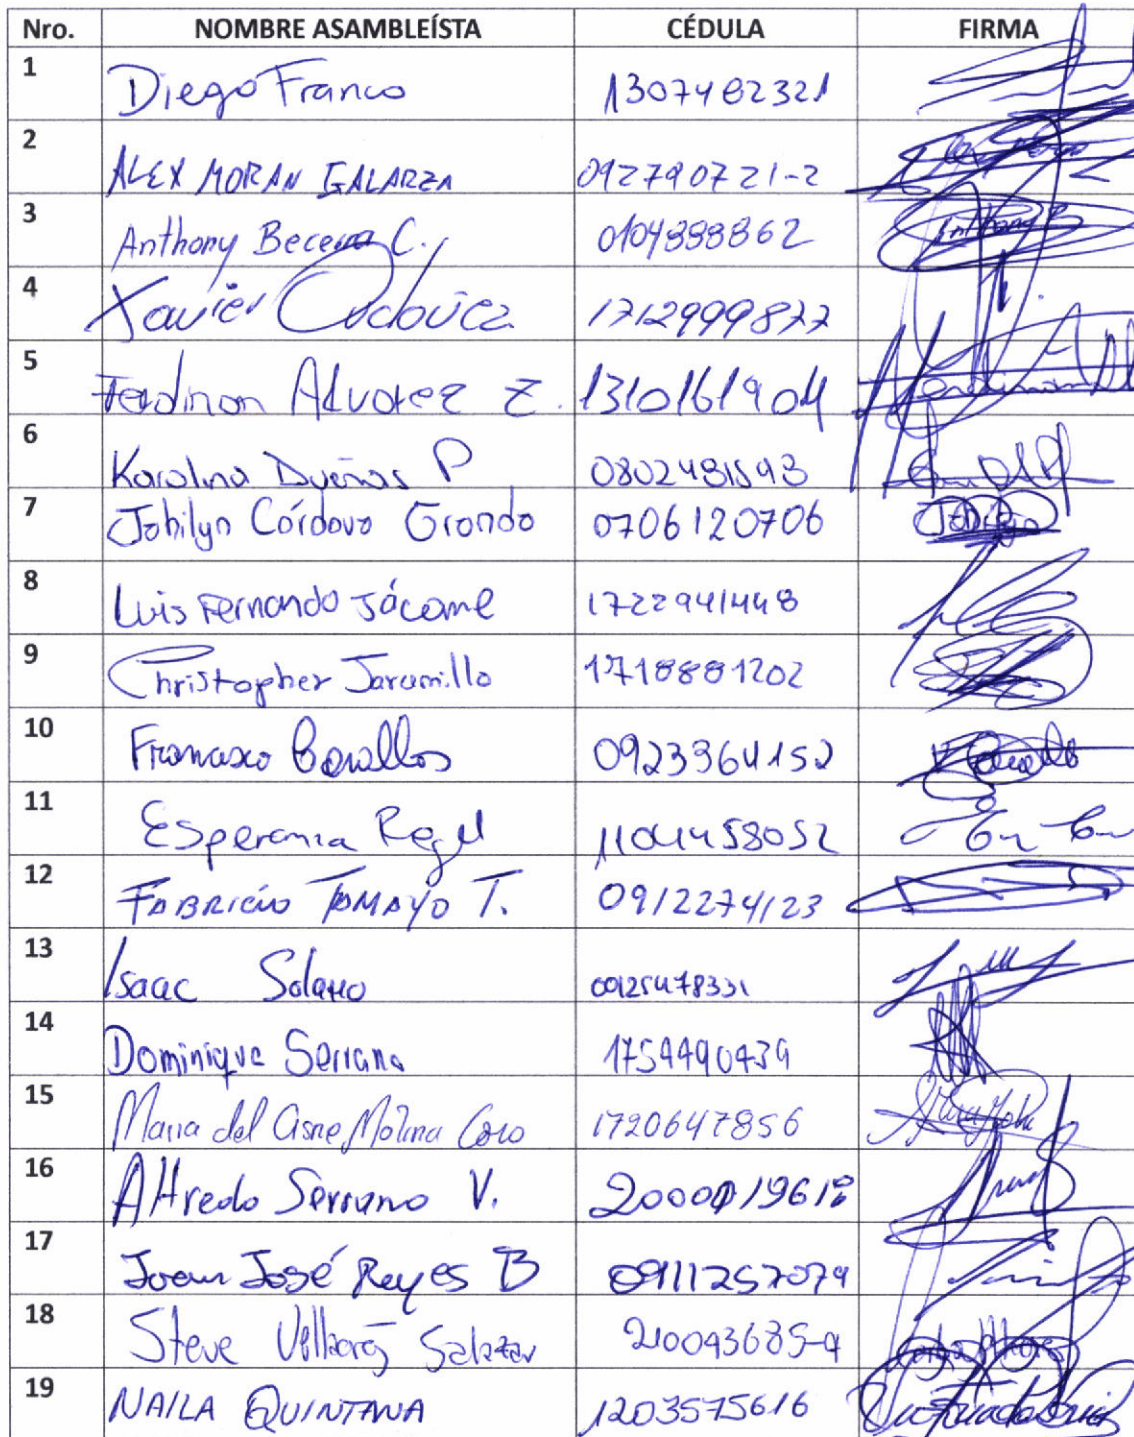 Nro. NOMBRE ASAMBLEÍSTA CÉDULA FIRMA
1 Diego Franco 1307482321
2 ALEX MORAN GALARZA 092790721-2
3 Anthony Becerra C. 0104888862 Anthony B
4 Xavier Ordoñez 1712999877
5 Ferdinan Alvarez Z. 1310161904
6 Karolina Dueñas P 0802481593
7 Johilyn Córdova Granda 0706120706
8 Luis Fernando Jácome 1722941448
9 Christopher Jaramillo 1718881202
10 Francisco Cevallos 0923364152
11 Esperanza Rogel 1104458052
12 FABRICIO TAMAYO T. 0912274123
13 Isaac Solano
14 Dominique Serrano 1754490439
15 Maria del Cisne Molina Coro 1720647856
16 Alfredo Serrano V.
17 Juan José Reyes B 0911257079
18 Steve Salazar 210043685-9
19 NAILA QUINTANA 1203575616